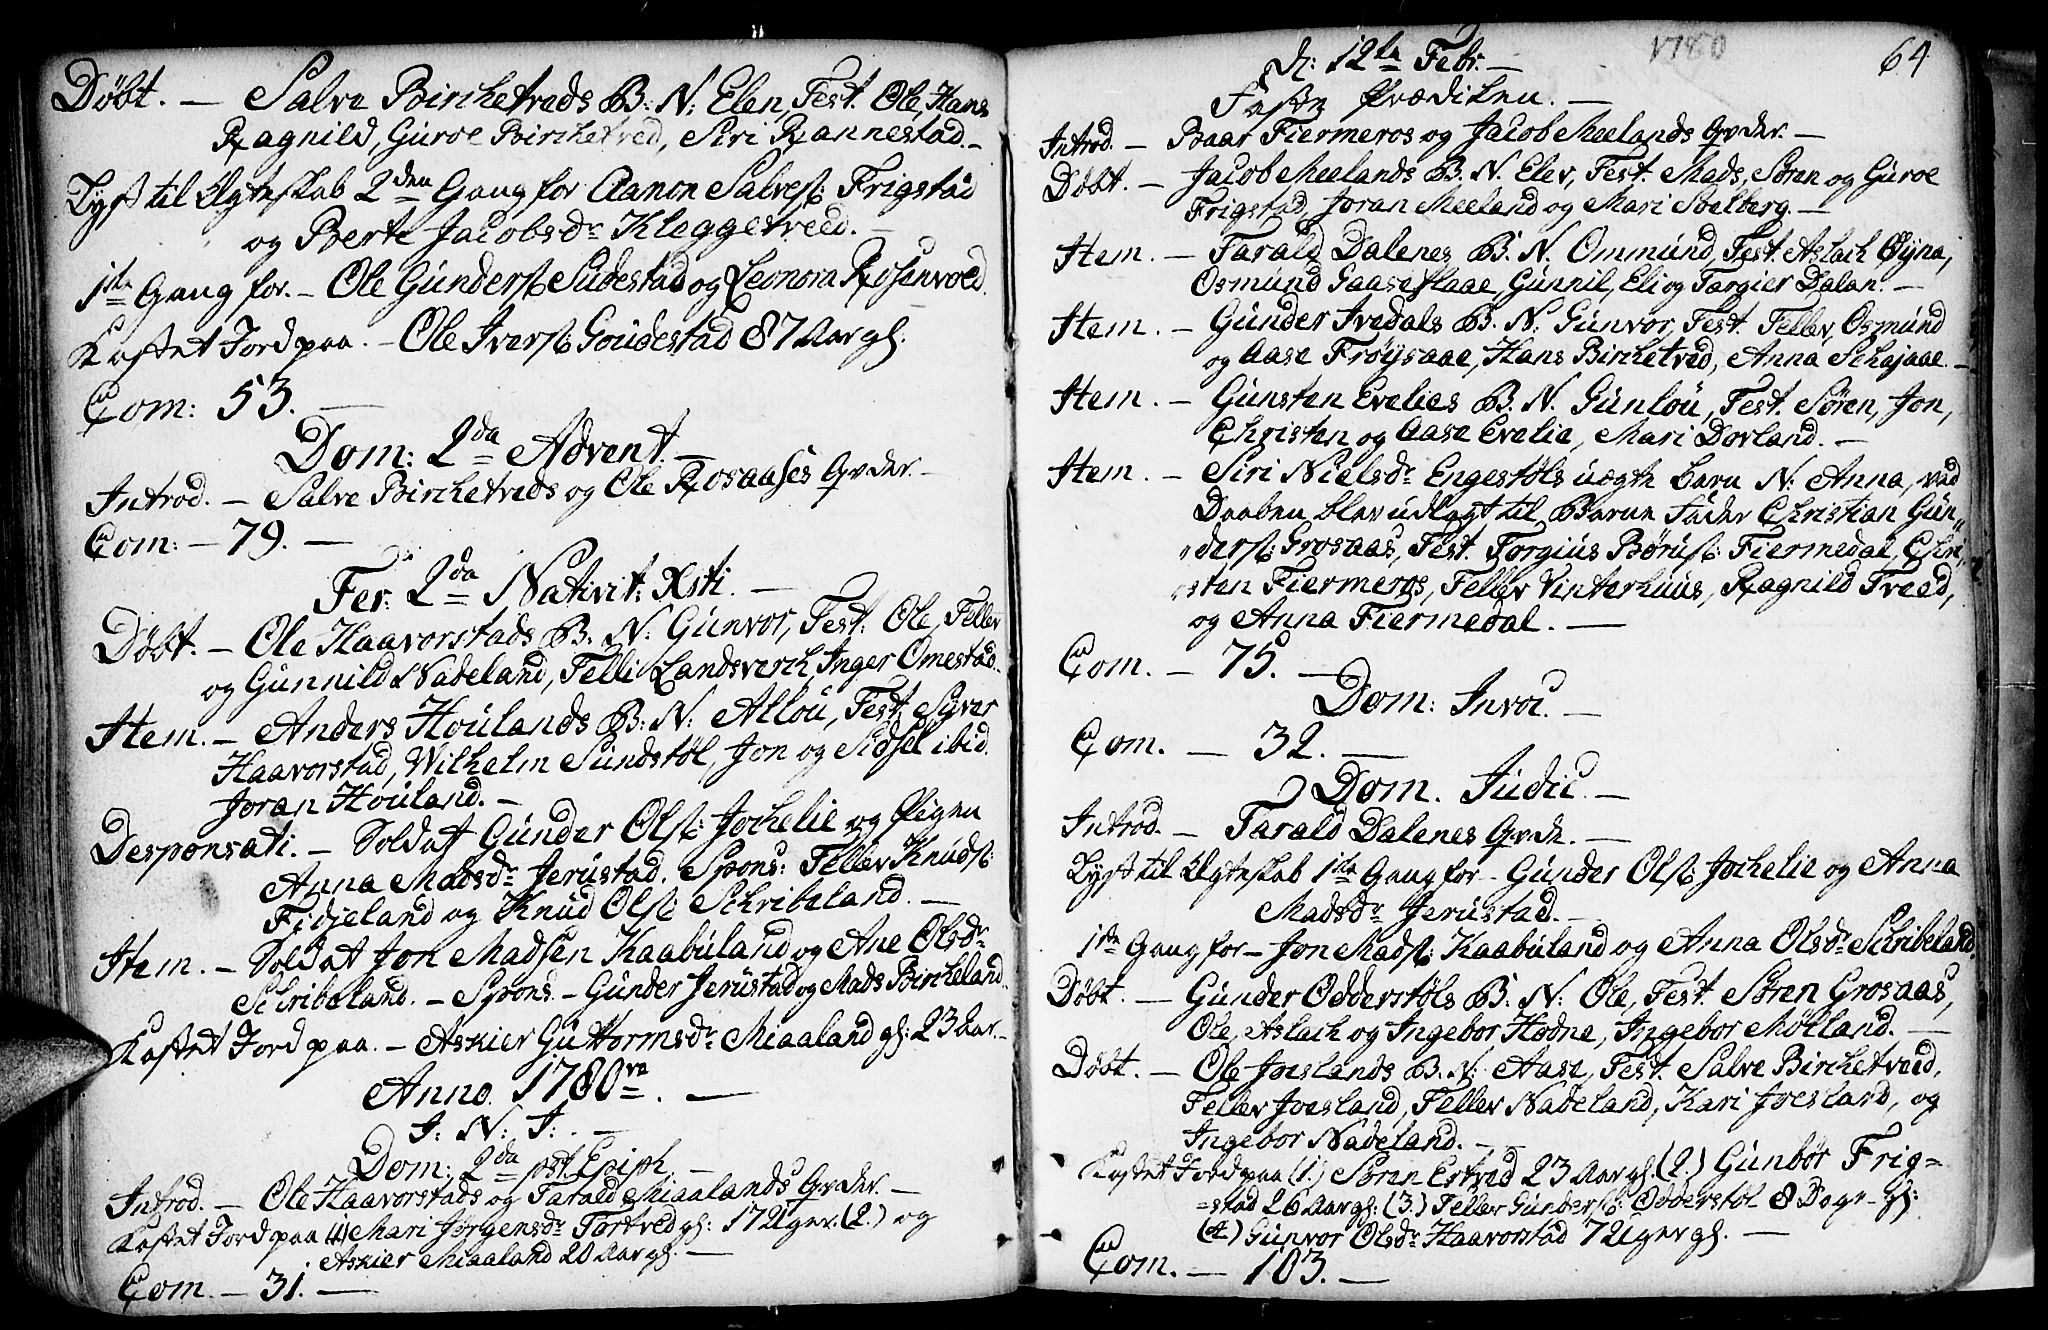 Döbt. — Salve Birchetveds B: N: Elen, Test. Ole, Hans
Ragnild, Guroe Birchetved, Siri Rannestad. —
Lyst til Ægteskab 2den Gang for Aanon Salves: Frigstad
og Berte Jacobsdr Kleggetveed. —
1ste Gang for. — Ole Gunders: Sudestad og Leonora Rosenvold.
Kastet Jord paa. — Ole Ivers: Goudestad 87 Aar gl.
Com: 53. —
Dom: 2da Advent. —
Introd. — Salve Birchetveds og Ole Rosaases Qvder. —
Com: — 79. —
Fer: 2da Nativit: Xsti. —
Döbt. — Ole Haavorstads B: N: Gunvor, Test: Ole, Tellev
og Gunnild Nadeland, Telli Landsverch, Inger Omestad.
Item. — Anders Houlands B: N: Allou, Test. Syver
Haavorstad, Wilhelm Sundstöl, Jon og Sidsel ibid.
Joran Houland. —
Desponsati. — Soldat Gunder Ols: Jochelie og Pigen
Anna Madsdr Jerustad. Spons: Tellev Knuds:
Fidjeland og Knud Ols: Schribeland. —
Item. — Soldat Jon Madsen Kaabuland og Ane Olsdr
Schribeland. — Spons. — Gunder Jerustad og Mads Bircheland.
Kastet Jord paa. — Askier Guttormsdr Miaaland gl: 23 Aar. —
Anno. 1780ve. —
J. N. J. —
Dom: 2da pst. Epiph. —
Introd. — Ole Haavorstads og Tarald Miaalands Qvder. —
Kastet Jord paa (1) Mari Jörgensdr Tortved gl: 17 Uger. (2.) og
Askier Miaaland 20 Aar gl. —
Com. — 31. —
1780
64
D: 12te Febr. —
Faste Prædiken. —
Introd. — Baar Fiermeros og Jacob Meelands Qvder. —
Döbt. — Jacob Meelands B. N. Elev, Test. Mads, Sören og Guroe
Frigstad, Joran Meeland og Mari Soelberg. —
Item. — Tarald Dalenes B: N. Ommund, Test. Aslach Øyna,
Osmund Gaaseflaae, Gunnil, Eli og Targier Dalan. —
Item. — Gunder Ivedals B. N: Gunvor, Test. Tellev, Osmund
og Aase Fröysaae, Hans Birchetved, Anna Schajaae. —
Item. — Gunsten Evelies B. N. Gunlou, Test. Sören, Jon,
Christen og Aase Evelie, Mari Dorland. —
Item. — Siri Nielsdr Engestöls uægte Barn N: Anna, ved
Daaben blev udlagt til Barne Fader Christian Gun„
„ders: Grosaas, Test. Torgius Börus: Fiermedal, Chri„
sten Fiermeros, Tellev Vinterhuus, Ragnild Tveed,
og Anna Fiermedal. —
Com. — 75. —
Dom: Invoc. —
Com. — 32. —
Dom. Judic. —
Introd. — Tarald Dalenes Qvde. —
Lyst til Ægteskab 1ste Gang for — Gunder Ols: Jochelie og Anna
Madsdr Jerustad. —
1ste Gang for — Jon Mads: Kaabuland og Anna Olsdr Schribeland.
Döbt. — Gunder Odderstöls B. N: Ole, Test. Sören Grosaas,
Ole, Aslach og Ingebor Hodne, Ingebor Mölland. —
Döbt. — Ole Joeslands B. N: Aase, Test. Salve Birchetveed,
Tellev Joesland, Tellev Nadeland, Kari Joesland, og
Ingebor Nadeland. —
Kastet Jord paa (1.) Sören Estved 23 Aar gl. (2.) Gunbör Frig=
=stad 26 Aar gl: (3.) Tellev Gunders: Odderstöl 8 Dage gl:
(4.) Gunvor Olsdr Haavorstad 7 Uger gl. —
Com. — 103. —